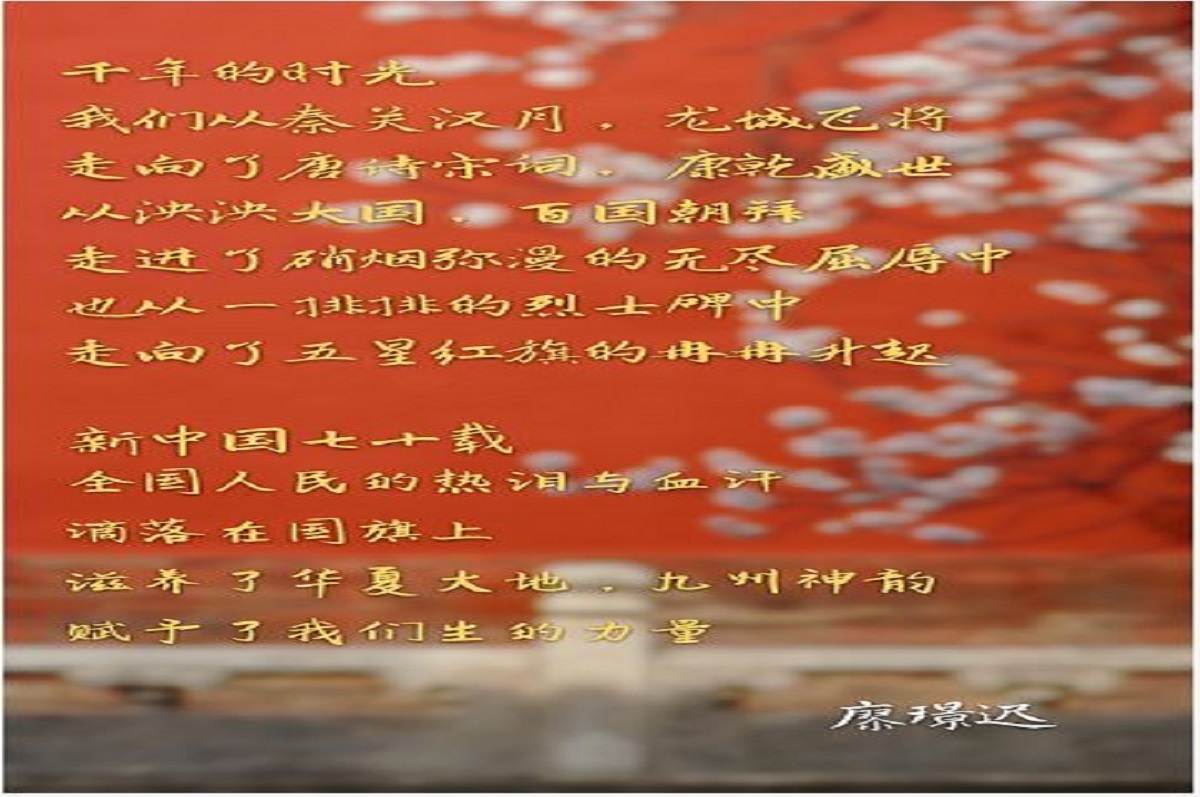 千年的时光
我们从秦关汉月，龙城飞将
走向了唐诗宋词，康乾盛世
从泱泱大国，百国朝拜
走进了硝烟弥漫的无尽屈辱中
也从一排排的烈士碑中
走向了五星红旗的冉冉升起
新中国七十载
全国人民的热泪与血汗
滴落在国旗上
滋养了华夏大地，九州神韵
赋予了我们生的力量
廖璟迟